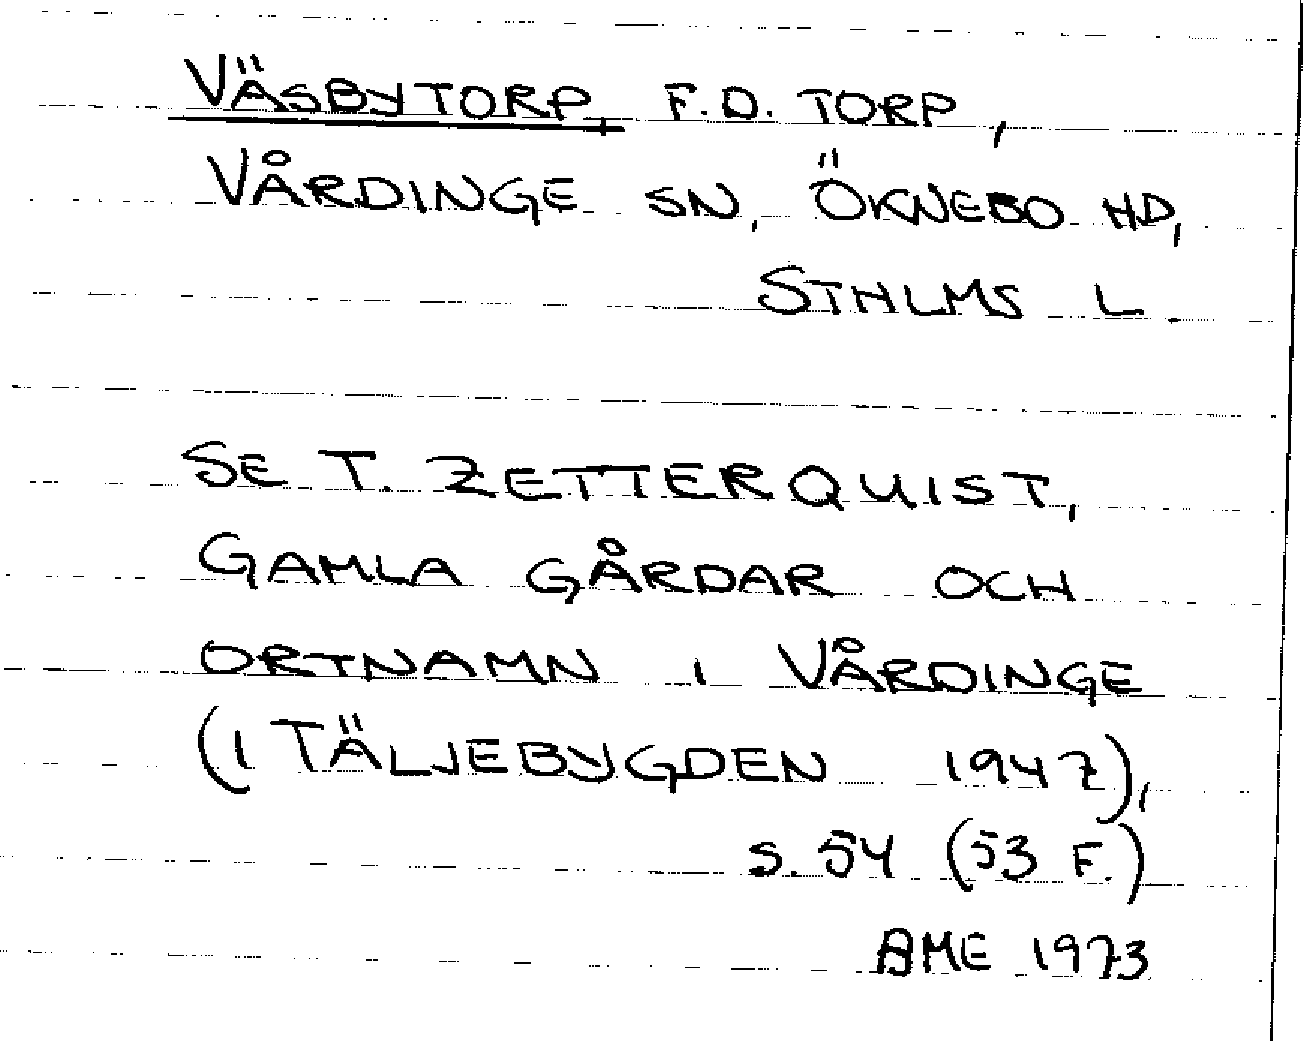 VÄSBYTORP, F.D. TORP,
VÅRDINGE SN, ÖKNEBO HD,
STHLMS L.
SE T. ZETTERQUIST,
GAMLA GÅRDAR OCH
ORTNAMN I VÅRDINGE
(I TÄLJEBYGDEN 1947),
S. 54 (53 F.)
AME 1973